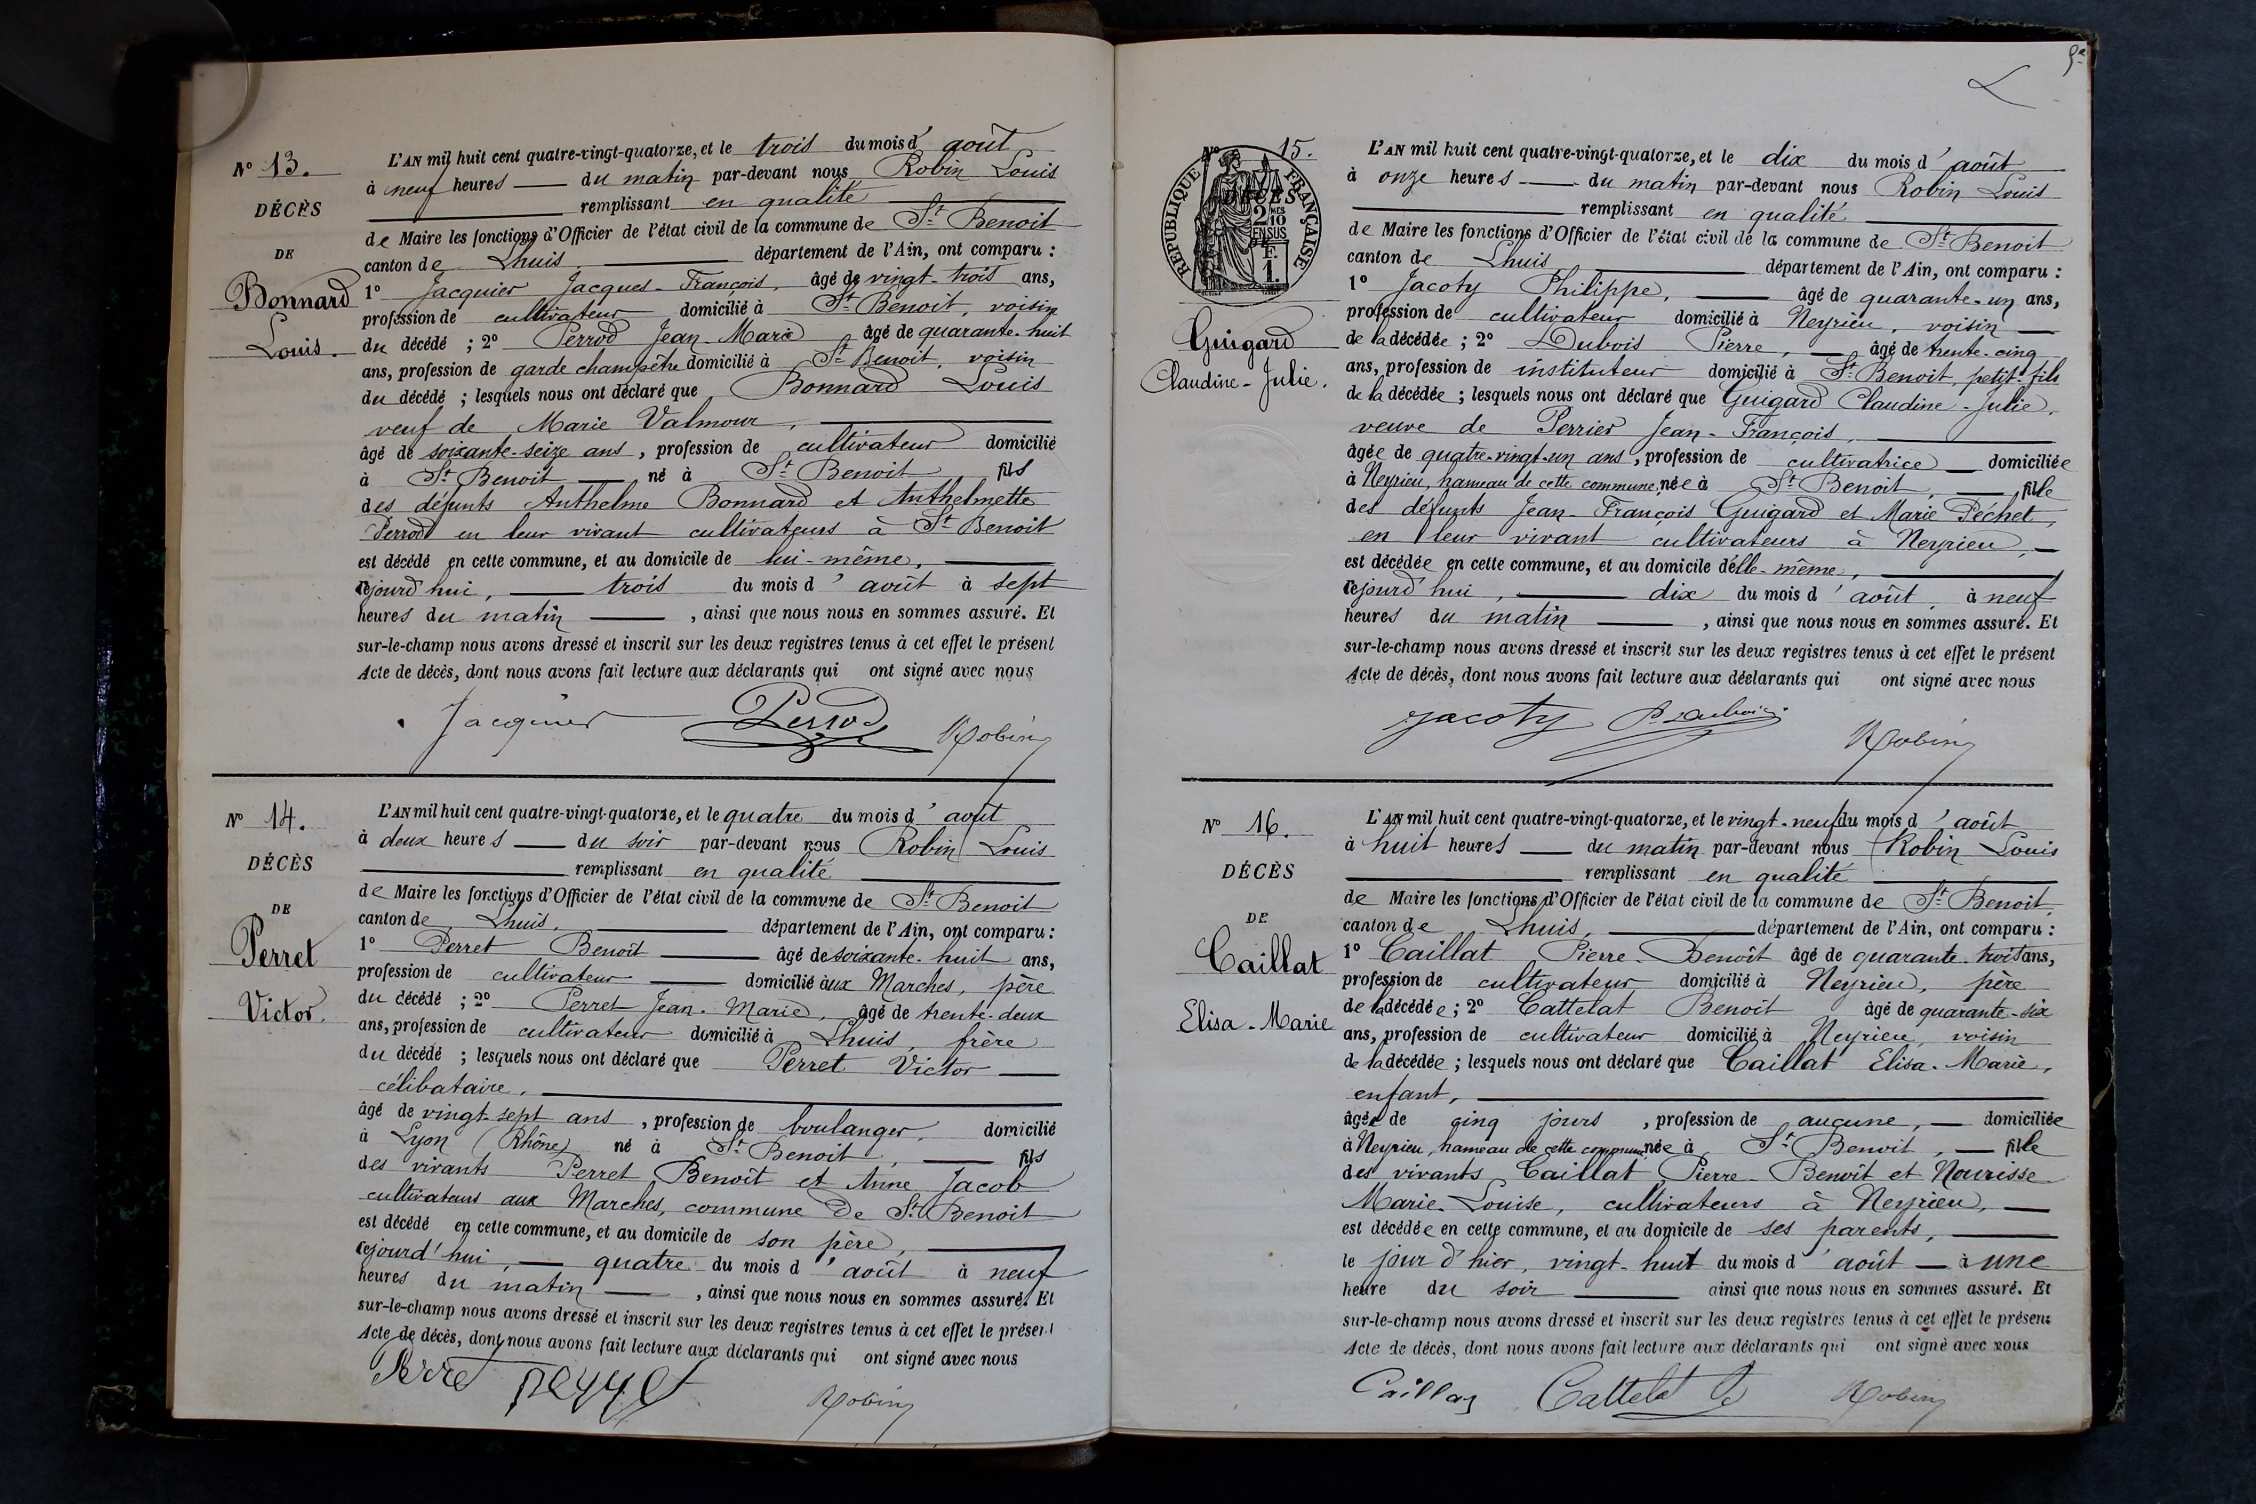 Nº 13.
DÉCÈS
DE
Bonnard
Louis.
L'AN mil huit cent quatre-vingt-quatorze, et le trois du mois d'août
à neuf heures du matin par-devant nous Robin Louis
remplissant en qualité
de Maire les fonctions d'Officier de l'état civil de la commune de St. Benoit
canton de Lhuis, département de l'Ain, ont comparu :
1º Jacquier Jacques-François, âgé de vingt-trois ans,
profession de cultivateur domicilié à St. Benoit, voisin
du décédé ; 2º Perrod Jean-Marie âgé de quarante-huit
ans, profession de garde champêtre domicilié à St. Benoit, voisin
du décédé ; lesquels nous ont déclaré que Bonnard Louis
veuf de Marie Valmour,
âgé de soixante-seize ans, profession de cultivateur domicilié
à St. Benoit né à St. Benoit fils
des défunts Anthelme Bonnard et Anthelmette
Perrod en leur vivant cultivateurs à St. Benoit
est décédé en cette commune, et au domicile de lui-même,
cejourd'hui, trois du mois d'août à sept
heures du matin, ainsi que nous nous en sommes assuré. Et
sur-le-champ nous avons dressé et inscrit sur les deux registres tenus à cet effet le présent
Acte de décès, dont nous avons fait lecture aux déclarants qui ont signé avec nous
Jacquier Perrod Robin
Nº 14.
DÉCÈS
DE
Perret
Victor.
L'AN mil huit cent quatre-vingt-quatorze, et le quatre du mois d'août
à deux heures du soir par-devant nous Robin Louis
remplissant en qualité
de Maire les fonctions d'Officier de l'état civil de la commune de St. Benoit
canton de Lhuis, département de l'Ain, ont comparu :
1º Perret Benoît âgé de soixante-huit ans,
profession de cultivateur domicilié aux Marches, père
du décédé ; 2º Perret Jean-Marie, âgé de trente-deux
ans, profession de cultivateur domicilié à Lhuis, frère
du décédé ; lesquels nous ont déclaré que Perret Victor
célibataire,
âgé de vingt-sept ans, profession de boulanger, domicilié
à Lyon (Rhône) né à St. Benoit, fils
des vivants Perret Benoît et Anne Jacob
cultivateurs aux Marches, commune de St. Benoit
est décédé en cette commune, et au domicile de son père,
cejourd'hui, quatre du mois d'août à neuf
heures du matin, ainsi que nous nous en sommes assuré. Et
sur-le-champ nous avons dressé et inscrit sur les deux registres tenus à cet effet le présent
Acte de décès, dont nous avons fait lecture aux déclarants qui ont signé avec nous
Perret Robin
5e
Nº 15.
DÉCÈS
RÉPUBLIQUE FRANÇAISE
2 MES
10
EN SUS
F.
1.
Guigard
Claudine-Julie.
L'AN mil huit cent quatre-vingt-quatorze, et le dix du mois d'août
à onze heures du matin par-devant nous Robin Louis
remplissant en qualité
de Maire les fonctions d'Officier de l'état civil de la commune de St. Benoit
canton de Lhuis département de l'Ain, ont comparu :
1º Jacoty Philippe, âgé de quarante-un ans,
profession de cultivateur domicilié à Neyrieu, voisin
de la décédée ; 2º Dubois Pierre, âgé de trente-cinq
ans, profession de instituteur domicilié à St. Benoit, petit-fils
de la décédée ; lesquels nous ont déclaré que Guigard Claudine-Julie,
veuve de Perrier Jean-François,
âgée de quatre-vingt-un ans, profession de cultivatrice domiciliée
à Neyrieu, hameau de cette commune, née à St. Benoit, fille
des défunts Jean-François Guigard et Marie Péchet,
en leur vivant cultivateurs à Neyrieu,
est décédée en cette commune, et au domicile d'elle-même,
cejourd'hui, dix du mois d'août, à neuf
heures du matin, ainsi que nous nous en sommes assuré. Et
sur-le-champ nous avons dressé et inscrit sur les deux registres tenus à cet effet le présent
Acte de décès, dont nous avons fait lecture aux déclarants qui ont signé avec nous
Jacoty P. Dubois Robin
Nº 16.
DÉCÈS
DE
Caillat
Elisa-Marie
L'AN mil huit cent quatre-vingt-quatorze, et le vingt-neuf du mois d'août
à huit heures du matin par-devant nous Robin Louis
remplissant en qualité
de Maire les fonctions d'Officier de l'état civil de la commune de St. Benoit,
canton de Lhuis, département de l'Ain, ont comparu :
1º Caillat Pierre-Benoît âgé de quarante-trois ans,
profession de cultivateur domicilié à Neyrieu, père
de la décédée ; 2º Cattelat Benoit âgé de quarante-six
ans, profession de cultivateur domicilié à Neyrieu, voisin
de la décédée ; lesquels nous ont déclaré que Caillat Elisa-Marie,
enfant,
âgée de cinq jours, profession de aucune, domiciliée
à Neyrieu, hameau de cette commune née à St. Benoit, fille
des vivants Caillat Pierre-Benoît et Nourisse
Marie-Louise, cultivateurs à Neyrieu,
est décédée en cette commune, et au domicile de ses parents,
le jour d'hier, vingt-huit du mois d'août à une
heure du soir ainsi que nous nous en sommes assuré. Et
sur-le-champ nous avons dressé et inscrit sur les deux registres tenus à cet effet le présent
Acte de décès, dont nous avons fait lecture aux déclarants qui ont signé avec nous
Caillat Cattelat Robin